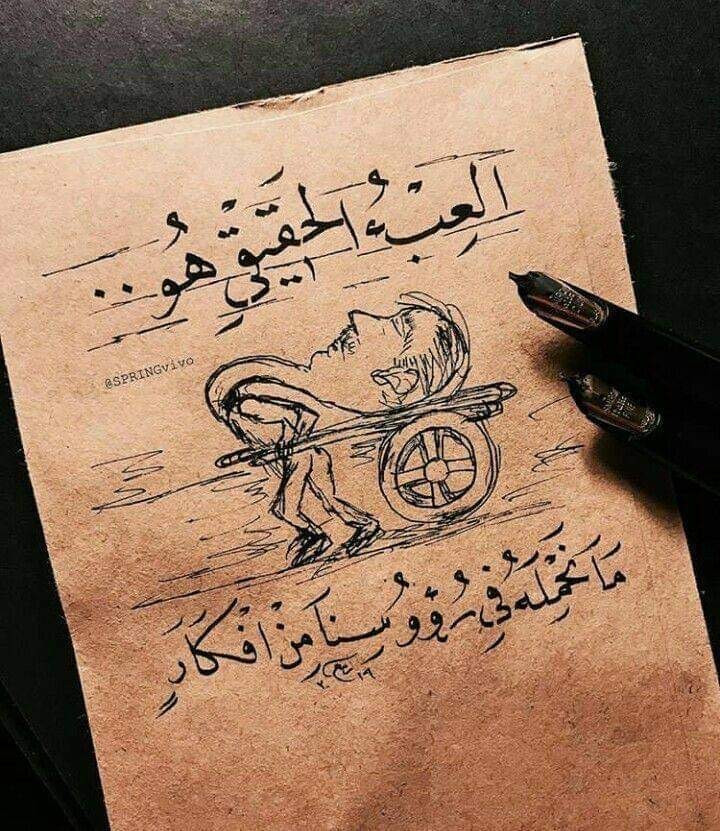 العِبْءُ الحَقِيقِي هُو..
@SPRINGvivo
مَا نَحْمِلَهُ فِي رُؤُوسِنَا مِنْ افْكَارٍ